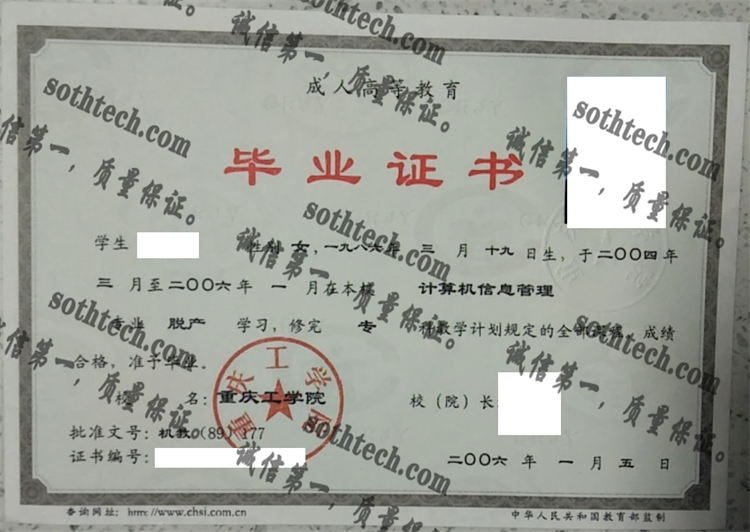 成人高等教育
毕业证书
学生 性别 女,一九八六年 三 月 十九 日生,于二〇〇四年
三 月至二〇〇六年 一 月在本校 计算机信息管理
专业 脱产 学习,修完 专 科教学计划规定的全部课程,成绩
合格,准予毕业。
校 名:重庆工学院 校(院)长:
重庆工学院
批准文号:机教(89)177
证书编号:
二〇〇六 年 一 月 五 日
查询网址:http://www.chsi.com.cn
中华人民共和国教育部监制
sothtech.com
诚信第一,质量保证。
sothtech.com
诚信第一,质量保证。
sothtech.com
诚信第一,质量保证。
sothtech.com
诚信第一,质量保证。
sothtech.com
诚信第一,质量保证。
sothtech.com
诚信第一,质量保证。
sothtech.com
诚信第一,质量保证。
sothtech.com
诚信第一,质量保证。